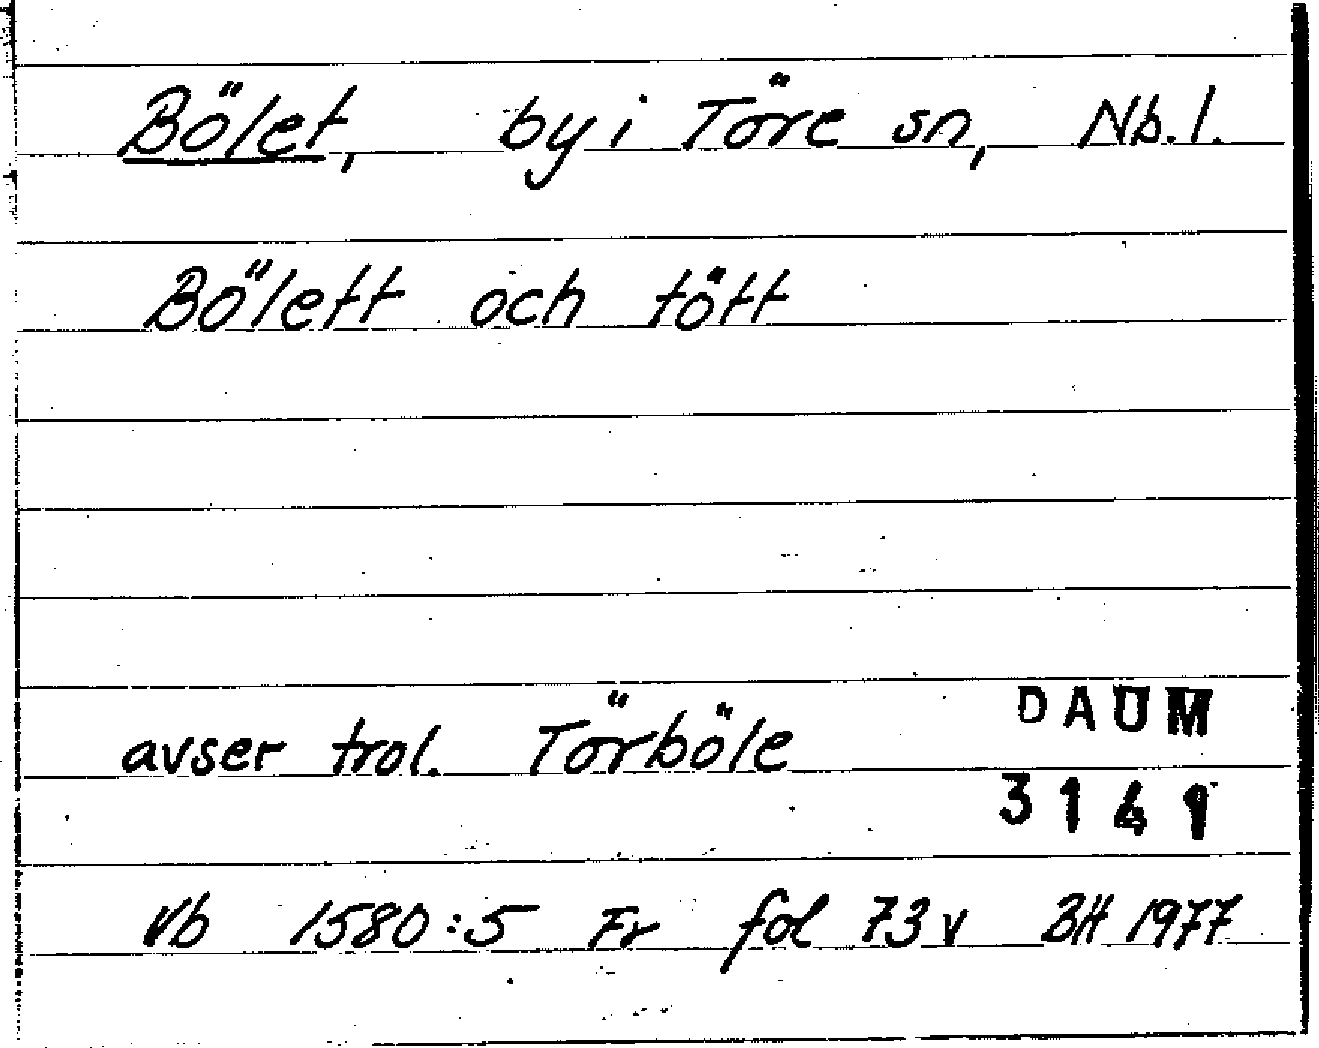 Bölet, by i Töre sn, Nb. l.
Bölett och tött
avser trol. Törböle
DAUM
3141
Vb 1580:5 Fr fol 73v BH 1977